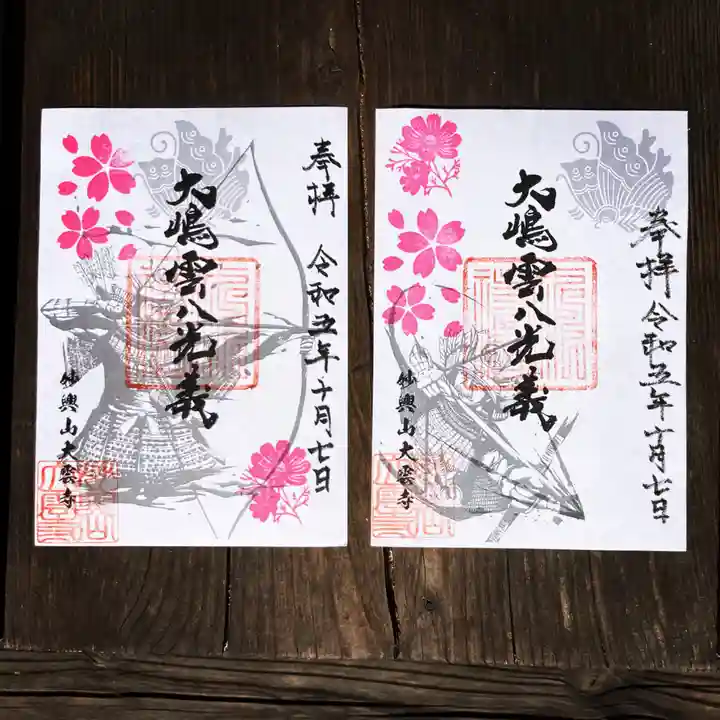 奉拝 令和五年十月七日
大嶋雲八光義
妙興山大雲寺
奉拝 令和五年十月七日
大嶋雲八光義
妙興山大雲寺